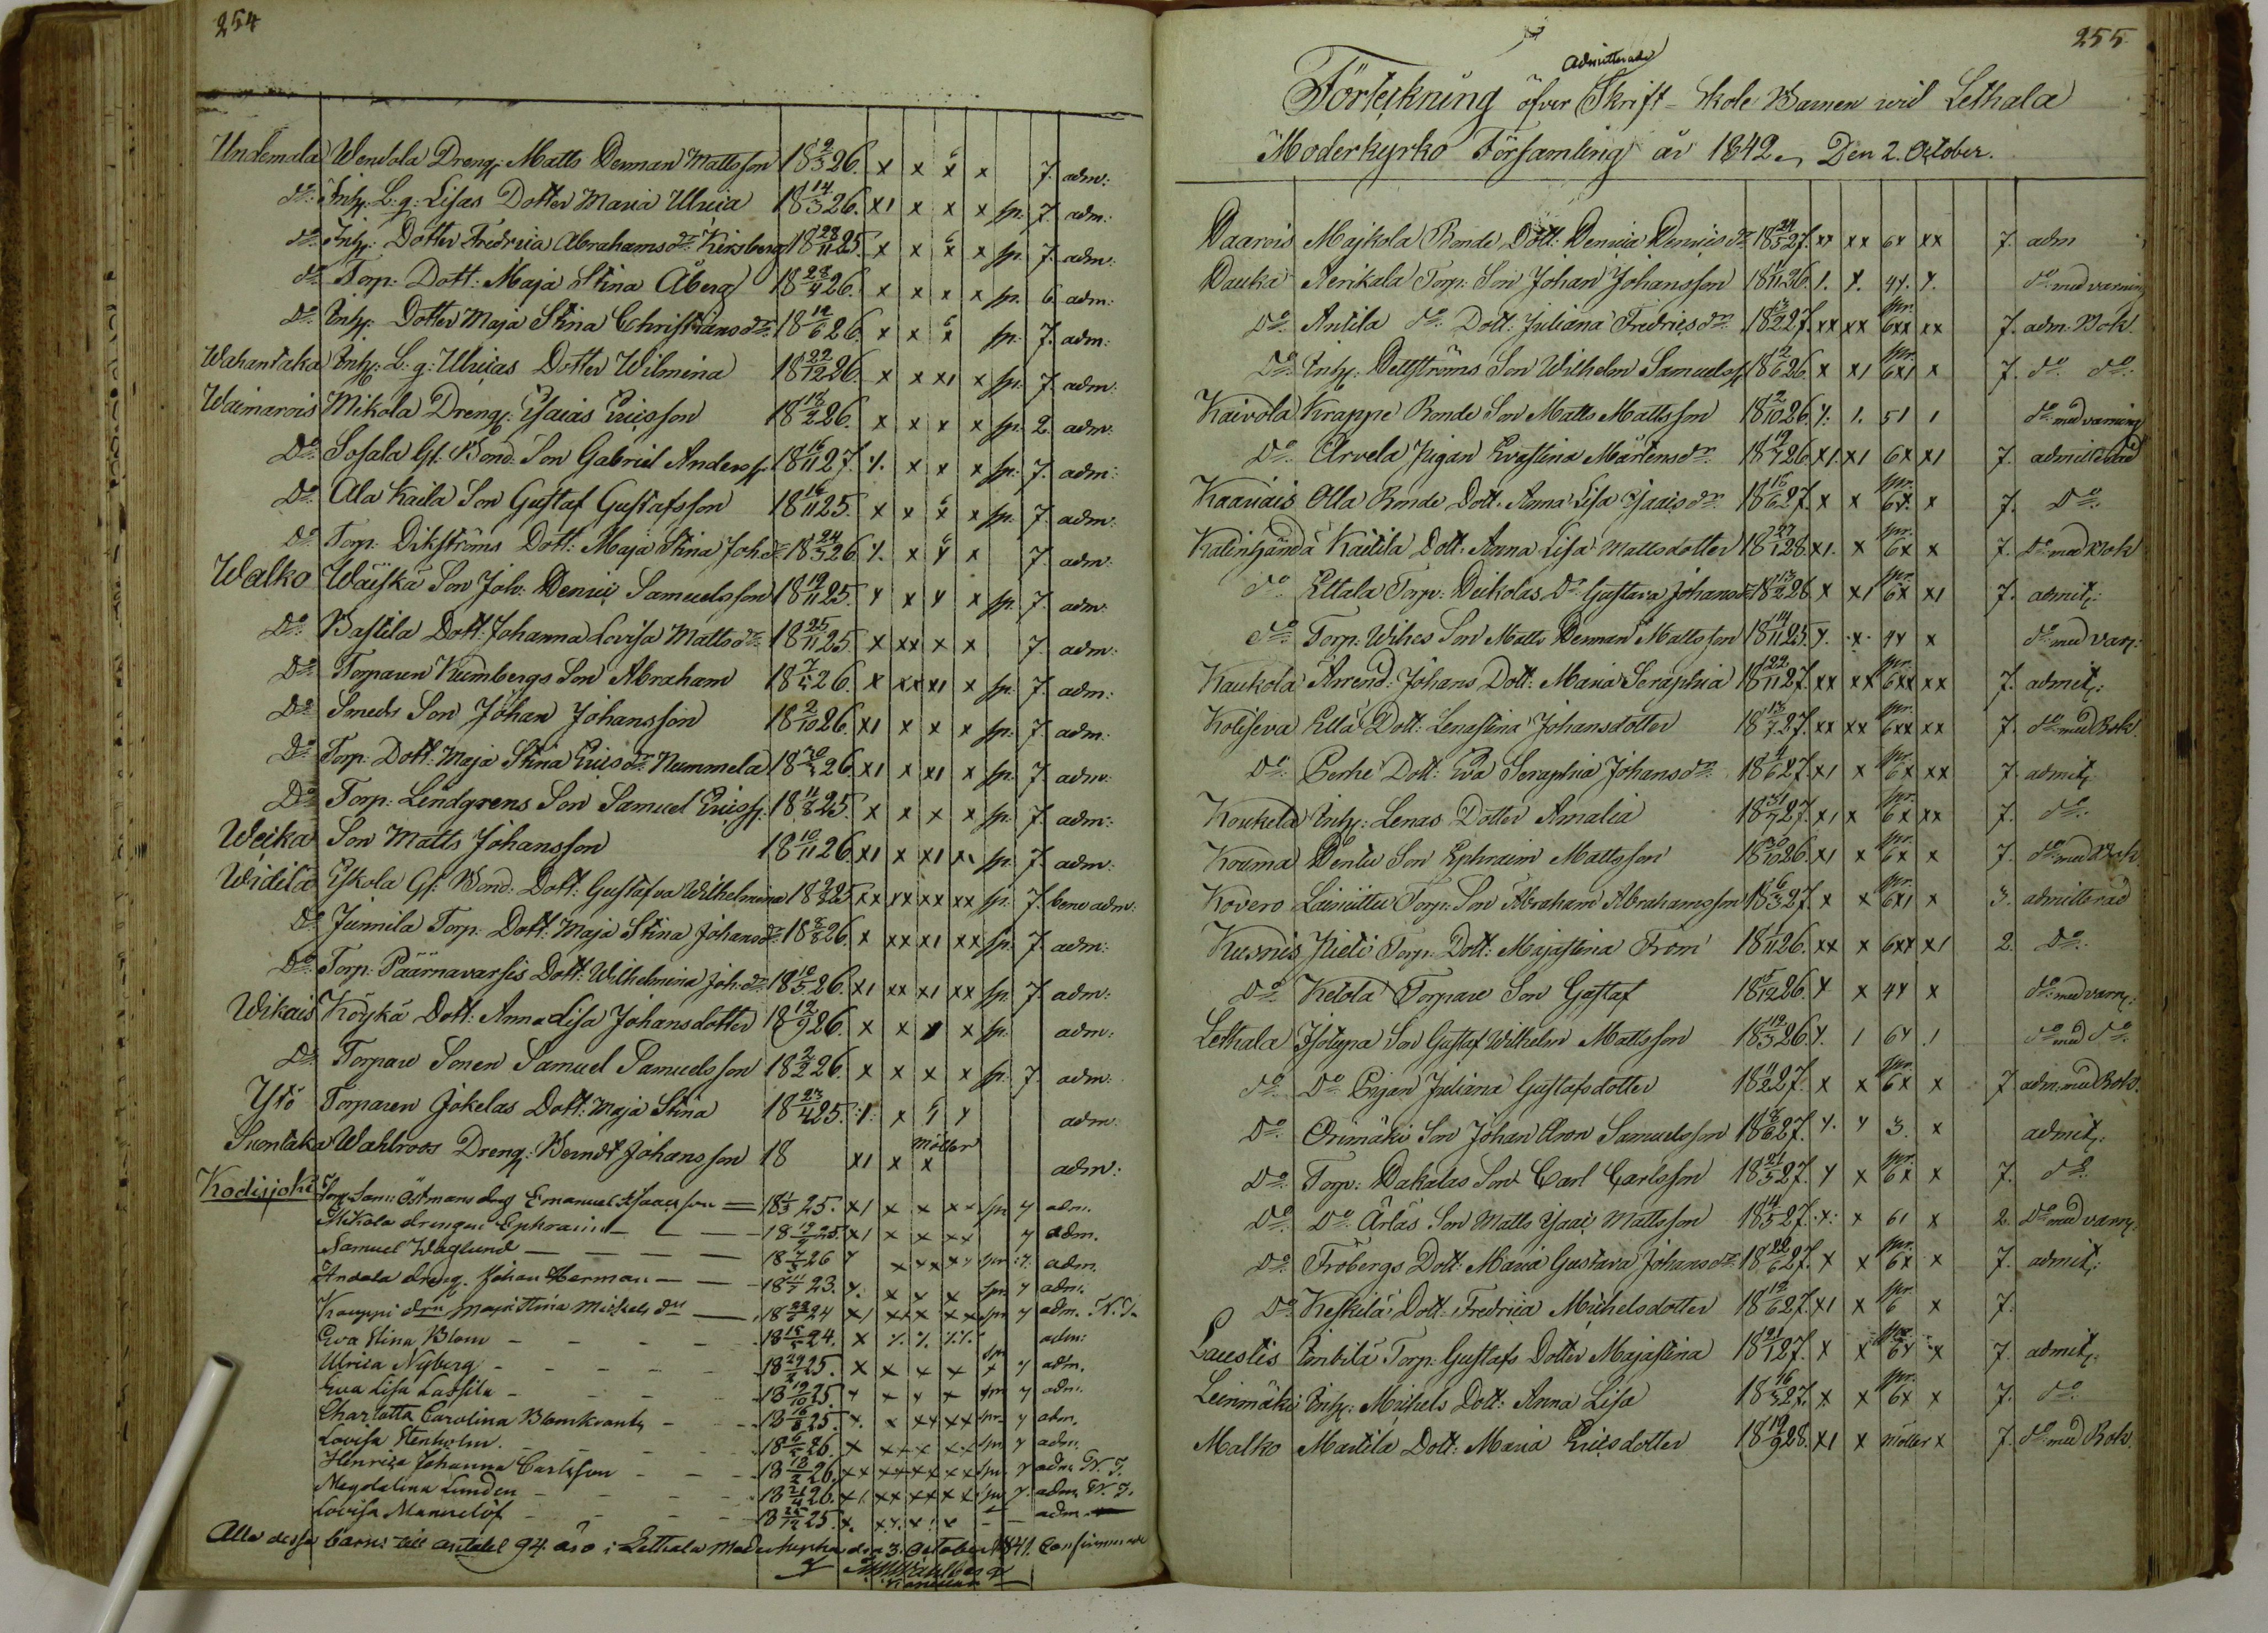 254
Undemala Wendola Dreng: Matts Herman Mattsson 18 9/5 26. x x x 6 x 7. adm:
do: Inh: L: g: Lisas Dotter Maria Ulrica 18 14/3 26. x1 x x x sp. 7. adm:
do: Inh: Dotter Fredrica Abrahamsdr. Kirsberg 18 28/11 25. x x x 6 x sp. 7. adm:
do: Torp: Dott: Maja Stina Åberg 18 28/4 26. x x x x sp. 6 adm:
Do: Inh: Dotter Maja Stina Christiansdr. 18 12/6 26. x x x 6 sp. 7. adm:
Wahantaka Inh: L: g: Ulricas Dotter Wilmina 18 22/12 26. x x x1 x sp. 7. adm:
Waimarois Mikola Dreng: Esaias Ericsson 18 18/2 26. x x x x sp. 2. adm:
Do: Sofala Gl: Bond: Son Gabriel Anderss: 18 16/11 27. x x x sp. 7. adm:
Do: Ala Kaila Son Gustaf Gustafsson 18 16/11 25. x x x 6 x sp. 7. adm:
Do: Torp: Dikströms Dott: Maja Stina Joh:dr 18 24/5 26 x x 7. adm:
Walko Wäiskä Son Joh: Henric Samuelsson 18 19/11 25. x x x x sp. 7. adm:
Do: Bastila Dott: Johanna Lovisa Mattsdr. 18 25/11 25. x xx x x 7. adm:
Do: Torparen Kumbergs Son Abraham 18 7/5 26. x xx x1 x sp. 7. adm:
Do: Smeds Son Johan Johansson 18 2/10 26. x1 x x x sp. 7. adm:
Do: Torp: Dott: Maja Stina Ericsdr. Nummela 18 20/3 26. x1 x x1 x sp. 7. adm:
Do: Torp: Lindgrens Son Samuel Ericss: 18 11/8 25. x x x x sp. 7. adm:
Weika Son Matts Johansson 18 10/11 26. x1 x x1 sp. 7. adm:
Widila Eskola Gl: Bond: Dott: Gustafva Wilhelmina 18 25. xx xx xx xx sp. 7. bene adm:
Do: Junnila Torp: Dott: Maja Stina Johansdr. 18 8/8 26. x xx x1 xx sp. 7. adm:
Do: Torp: Päärnavarsis Dott: Wilhelmina Joh:dr. 18 10/5 26. x1 xx x1 xx sp. 7. adm:
Wikais Köykä Dott: Anna Lisa Johansdotter 18 19/9 26. x x x sp. adm:
Do: Torpare Sonen Samuel Samuelsson 18 2/2 26. x x x x sp. 7. adm:
Yrö Torparen Jokelas Dott: Maja Stina 18 23/4 25. adm:
Suontaka Wahlroos Dreng: Berndt Johansson 18 x1 x x möller adm:
Kodisjoki Torp. Son: Östmans dreng Emanuel Isaacsson 18 25. x1 x x xx spr 7 adm.
Mikola drengen Ephraim 18 25. x1 x x xx 7 adm.
Samuel Waglund 18 26 spr. 7. adm.
Andala dreng. Johan Herman 18 23. x x x spr 7 adm.
Kauppi drn Maja Stina Michels dr 18 24 x1 xxx xx spr 7 adm.
Eva Stina Blom 18 24. adm:
Ulrica Nyberg 18 25. x x x x spr 7 adm.
Eva Lisa Lassila 18 19/10 25. spr 7 adm.
Charlotta Carolina Blomkrantz 18 16/8 25. x x xx xx spr. 7 adm.
Lovisa Stenholm 18 26. spr 7 adm.
Henrica Johanna Carlsson 18 26. xx xx xx xx spr 7 adm.
Magdalena Lunden 18 21/4 26. x1 xx xx xx spr 7. adm.
Lovisa Mannelöf 18 25/12 25. adm.
Alla dessa barn: till antalet 94 äro i Lethala Moderkyrka den 3. October 1841. Confirmerade
255
Förteckning öfver Admitterade Skrift-Skole Barnen vid Lethala
Moderkyrko Församling år 1842, Den 2. October.
Haarois Majkola Bonde Dott: Henrica Henricsdr 18 24/5 27. xx xx 6x xx 7. adm
Hauka Aerikala Torp: Son Johan Johansson 18 1/11 26. do med varning
Do. Antila do. Dott: Juliana Fredricsdr. 18 3/2 27. xx xx spr. 6xx xx 7. adm. Bok
Do. Inh: Hellströms Son Wilhelm Samuelss: 18 2/6 26 x x1 spr. 6x1 x 7. do. do.
Kaivola Krappe Bonde Son Matts Mattsson 18 2/10 26 51 do med varning
Do. Arvela Pigan Evastina Mårtensdr. 18 19/7 26 x1. x1 6x x1 7. admitterad
Kaariais Olla Bonde Dott. Anna Lisa Isaacsdr. 18 16/6 27. x x spr. 6x. x 7. Do.
Katinhändä Kaitila Dott: Anna Lisa Mattsdotter 18 27/1 28. x1. x spr. 6x x 7. Do med Bok
do Eltala Torp: Heikolas Dr Gustava Johansdr 18 13/2 28 x x1 spr. 6x x1 7. admit:
do Torp: Wihes Son Matts Herman Mattsson 18 14/11 25. x 4x x do med varn:
Kaukola Arrend: Johans Dott: Maria Seraphia 18 22/11 27. xx xx spr. 6xx xx 7. admit:
Koliseva Ella Dott: Lenastina Johansdotter 18 13/7 27. xx xx spr. 6xx xx 7. do med Bok
Do. Perhe Dott: Eva Seraphia Johansdr. 18 4/6 27. x1 x spr. 6x xx 7. admit:
Koukela Inh: Lenas Dotter Amalia 18 31/7 27. x1 x spr. 6x xx 7. do.
Kouma Henlu Son Ephraim Mattsson 18 30/10 26. x1 x spr. 6x x 7. do med Bok
Kovero Torp: Son Abraham Abrahamsson 18 6/3 27. x x spr. 6x1 x 3. admitterad
Kusnis Torp: Dott: Majastina From 18 1/11 26. xx x 6xx x1 2. Do.
Do. Ketola Torpare Son Gustaf 18 5/12 26. x 4x x do med varn:
Lethala Isotupa Son Gustaf Wilhelm Mattsson 18 19/3 26 do med do.
do Do Pigan Juliana Gustafsdotter 18 11/2 27. x x spr. 6x x 7 adm. med Bok.
Do. Orimäki Son Johan Aron Samuelsson 18 8/6 27. 3. x admit:
Do. Torp: Hakalas Son Carl Carlsson 18 21/5 27. x spr. 6x x 7. do.
Do. Do. Ärläs Son Matts Isaac Mattsson 18 14/5 27. x 61 x 2. Do med varn:
Do. Fröbergs Dott: Maria Gustava Johansdr. 18 22/6 27. x x spr. 6x x 7. admit:
Do. Keskilä Dott: Fredrica Michelsdotter 18 12/6 27. x1 x spr. 6 x 7.
Laustis Torp: Gustafs Dotter Majastina 18 21/1 27. x x spr. 6x x 7. admit:
Leinmäki Inh: Michels Dott: Anna Lisa 18 16/5 27. x x spr. 6x x 7. do.
Malko Martila Dott: Maria Ericsdotter 18 19/9 28. x1 x möller x 7. do med Bok.